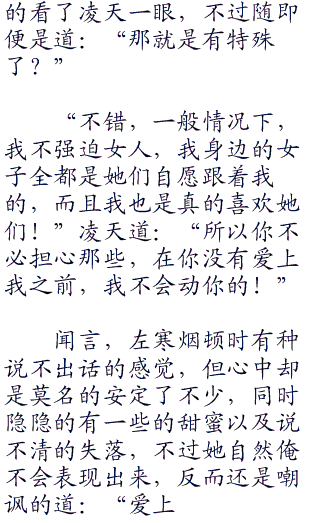 的看了凌天一眼，不过随即
便是道：“那就是有特殊
了？”
“不错，一般情况下，
我不强迫女人，我身边的女
子全都是她们自愿跟着我
的，而且我也是真的喜欢她
们！”凌天道：“所以你不
必担心那些，在你没有爱上
我之前，我不会动你的！”
闻言，左寒烟顿时有种
说不出话的感觉，但心中却
是莫名的安定了不少，同时
隐隐的有一些的甜蜜以及说
不清的失落，不过她自然俺
不会表现出来，反而还是嘲
讽的道：“爱上